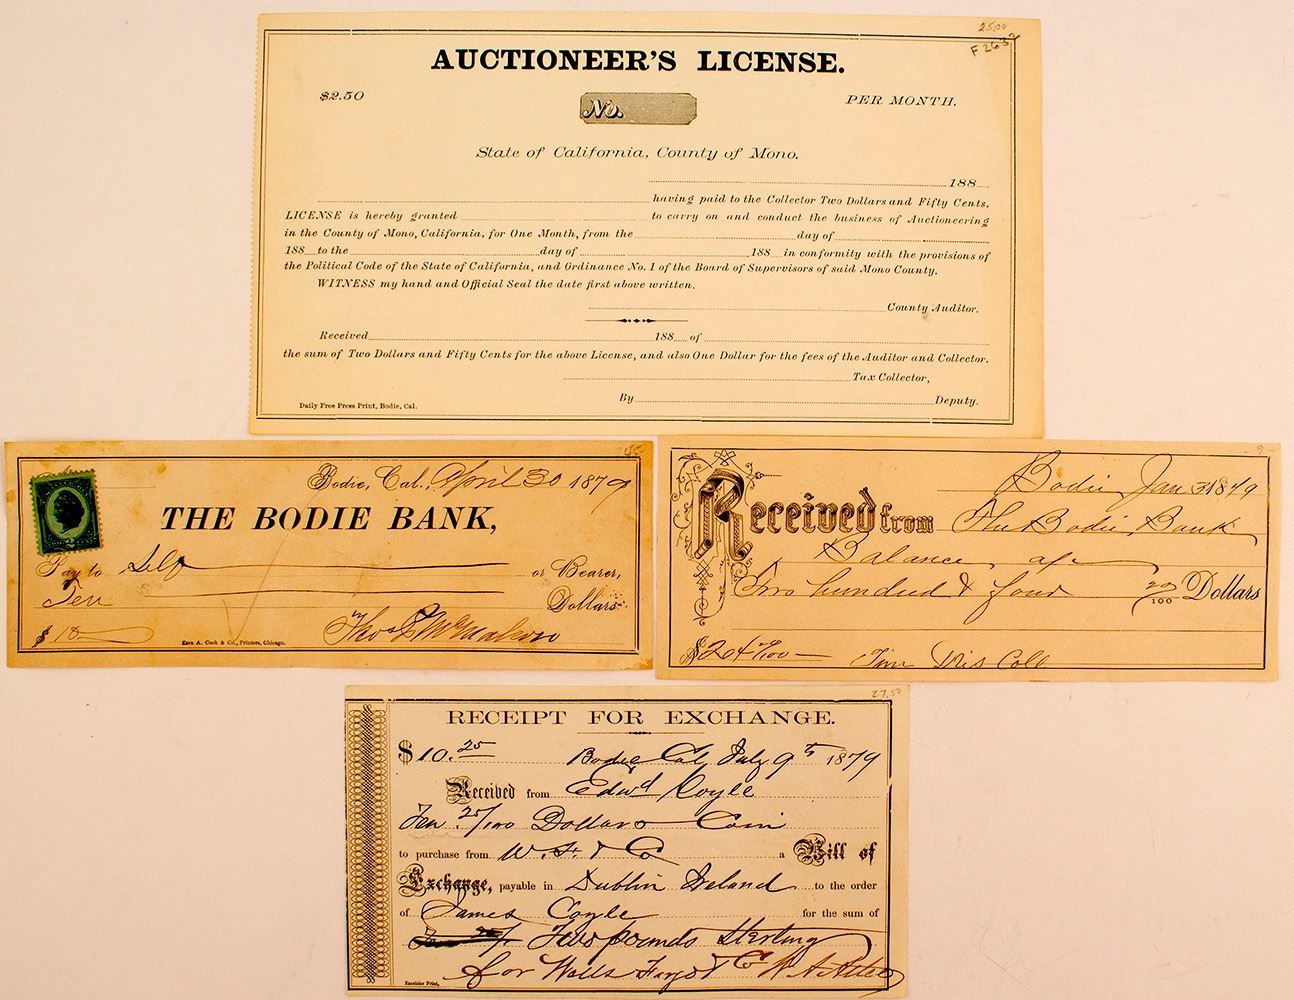 25.00
F 2632
AUCTIONEER'S LICENSE.
$2.50 No. PER MONTH.
State of California, County of Mono.
188
having paid to the Collector Two Dollars and Fifty Cents,
LICENSE is hereby granted to carry on and conduct the business of Auctioneering
in the County of Mono, California, for One Month, from the day of
188 to the day of 188 in conformity with the provisions of
the Political Code of the State of California, and Ordinance No. 1 of the Board of Supervisors of said Mono County.
WITNESS my hand and Official Seal the date first above written.
County Auditor.
Received 188 of
the sum of Two Dollars and Fifty Cents for the above License, and also One Dollar for the fees of the Auditor and Collector.
Tax Collector,
By Deputy.
Daily Free Press Print, Bodie, Cal.
Bodie, Cal., April 30 1879
THE BODIE BANK,
Pay to Self or Bearer,
Ten Dollars
$ 10 Thos McMahon
Ezra A. Cook & Co., Printers, Chicago.
Bodie Jan 1879
Received from The Bodie Bank
Balance
Two hundred & four 20/100 Dollars
$204 Tim
27.50
RECEIPT FOR EXCHANGE.
$10.25 Bodie Cal July 9th 1879
Received from Edwd Coyle
Ten 25/100 Dollars Coin
to purchase from W. F. & Co a Bill of
Exchange, payable in Dublin Ireland to the order
of James Coyle for the sum of
Two pounds Sterling
for Wells Fargo & Co
Excelsior Print,